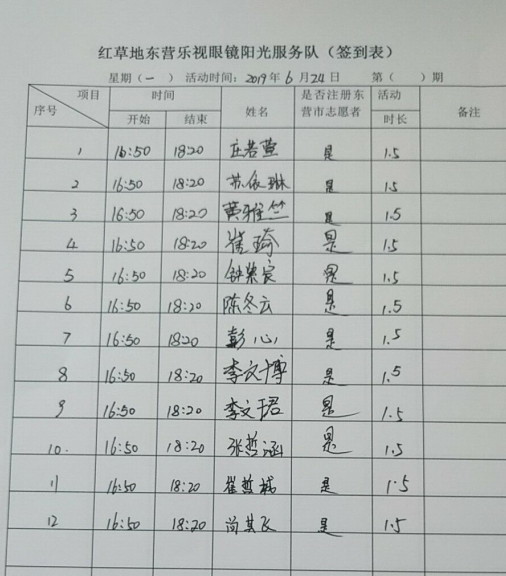 红草地东营乐视眼镜阳光服务队（签到表）
星期（一） 活动时间：2019年6月24日 第（ ）期
项目 序号 时间 姓名 是否注册东营市志愿者 活动 备注
开始 结束 时长
1 16:50 18:20 庄若萱 是 1.5
2 16:50 18:20 苏依琳 是 1.5
3 16:50 18:20 黄雅竺 是 1.5
4 16:50 18:20 崔琦 是 1.5
5 16:50 18:20 是 1.5
6 16:50 18:20 陈冬云 是 1.5
7 16:50 18:20 彭心 是 1.5
8 16:50 18:20 李文博 是 1.5
9 16:50 18:20 李文珺 是 1.5
10. 16:50 18:20 张哲涵 是 1.5
11 16:50 18:20 崔哲 是 1.5
12 16:50 18:20 尚其飞 是 1.5